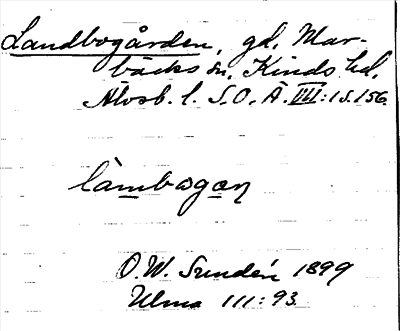 Landbogården, gd, Mar-
bäcks sn, Kinds hd,
Älvsb. l. S.O.Ä. VIII:1 S. 156.
làmbogan
O.W. Sundén 1899
Ulma 111:93.